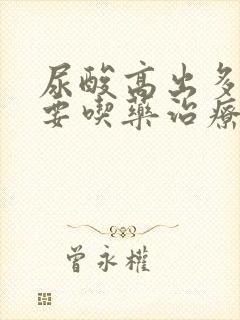 尿酸高出多
要喫藥治療
曾永權